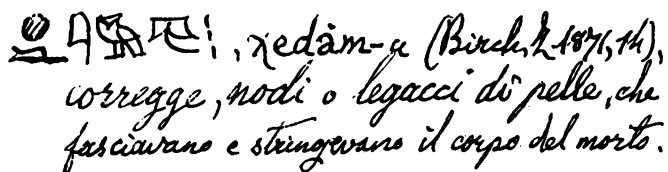 , χedâm-u (Birch, Z. 1871, 14),
corregge, nodi o legacci di pelle, che
fasciavano e stringevano il corpo del morto.